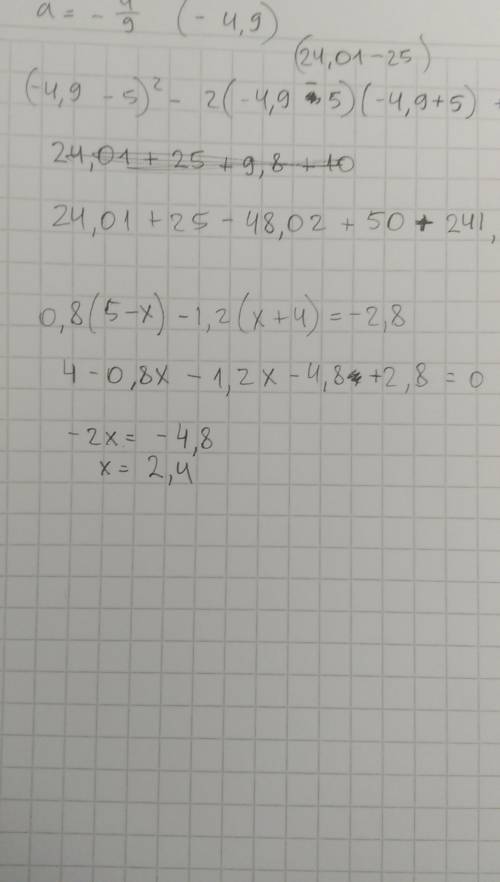 a = - 4/9 (- 4,9)
(24,01-25)
(-4,9 - 5)² - 2(-4,9 - 5)(-4,9+5) +
24,01 + 25 + 9,8 + 10
24,01 + 25 - 48,02 + 50 + 241,
0,8(5-x) - 1,2(x+4) = -2,8
4 - 0,8x - 1,2x - 4,8 +2,8 = 0
-2x = -4,8
x = 2,4